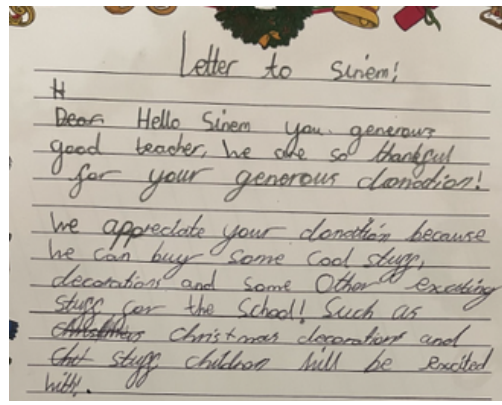 Letter to Sinem!
H
Dear Hello Sinem you generous
good teacher, we are so thankful
for your generous donation!
We appreciate your donation because
we can buy some cool stuff,
decorations and some Other exciting
stuff for the School! Such as
Christmas christmas decorations and
stuff children will be excited
with.